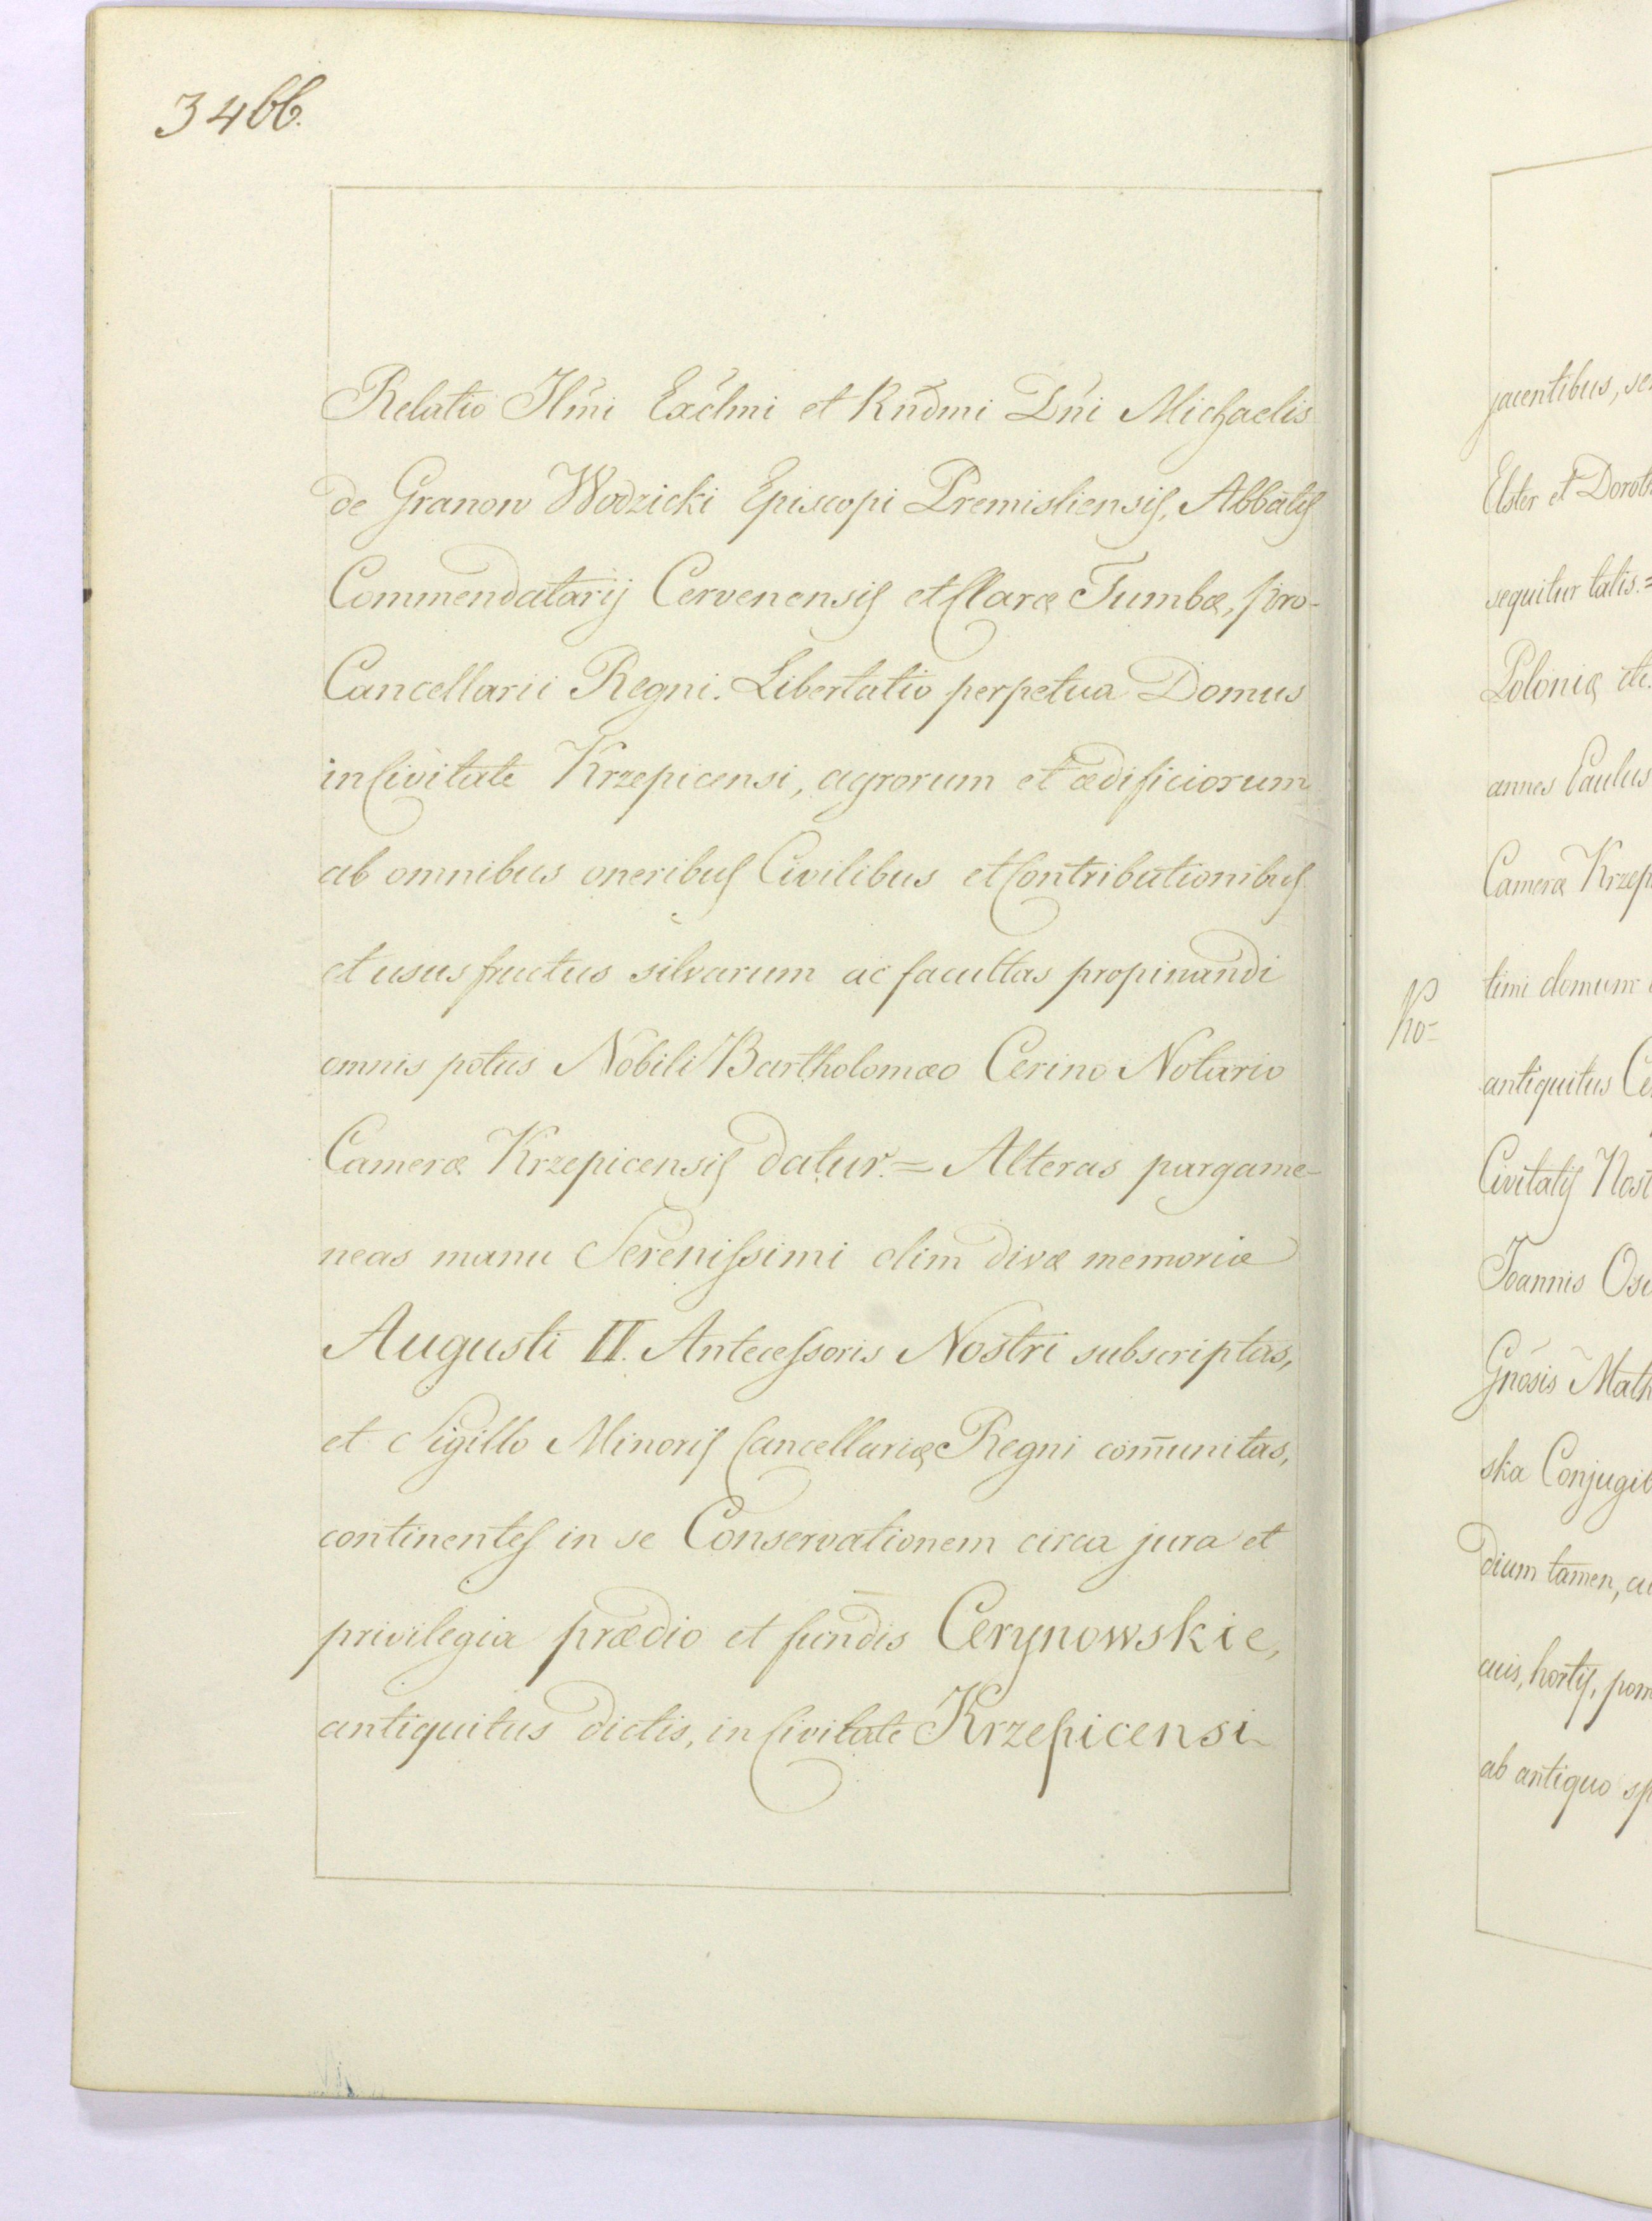 3466.
Relatio Illm̄i Exc̄lmi et Rnd̄mi Dn̄i Michaelis
de Granow Wodzicki Episcopi Premisliensis, Abbatis
Commendatarij Cervenensis et Claræ Tumbæ, pro-
Cancellarii Regni. Libertatio perpetua Domus
in Civitate Krzepicensi, agrorum et ædificiorum
ab omnibus oneribus Civilibus et Contributionibus
et usus fructus silvarum ac facultas propinandi
omnis potus Nobili Bartholomæo Cerino Notario
Cameræ Krzepicensis datur. = Alteras pargame-
neas manu Serenissimi olim divæ memoriæ
Augusti II. Antecessoris Nostri subscriptas,
et Sigillo Minoris Cancellariæ Regni com̄unitas,
continentes in se Conservationem circa jura et
privilegia prædio et fundis Cerynowskie,
antiquitus dictis, in Civitate Krzepicensi
jacentibus, se
Elster et Doroth
sequitur talis. =
Poloniæ etc.
annes Paulus
Cameræ Krzep
timi domum
antiquitus Ce
Civitatis Nost
Joannis Os
Gnōsis Math
ska Conjugib
dium tamen, cu
cuis, hortis, pom
ab antiquo sp